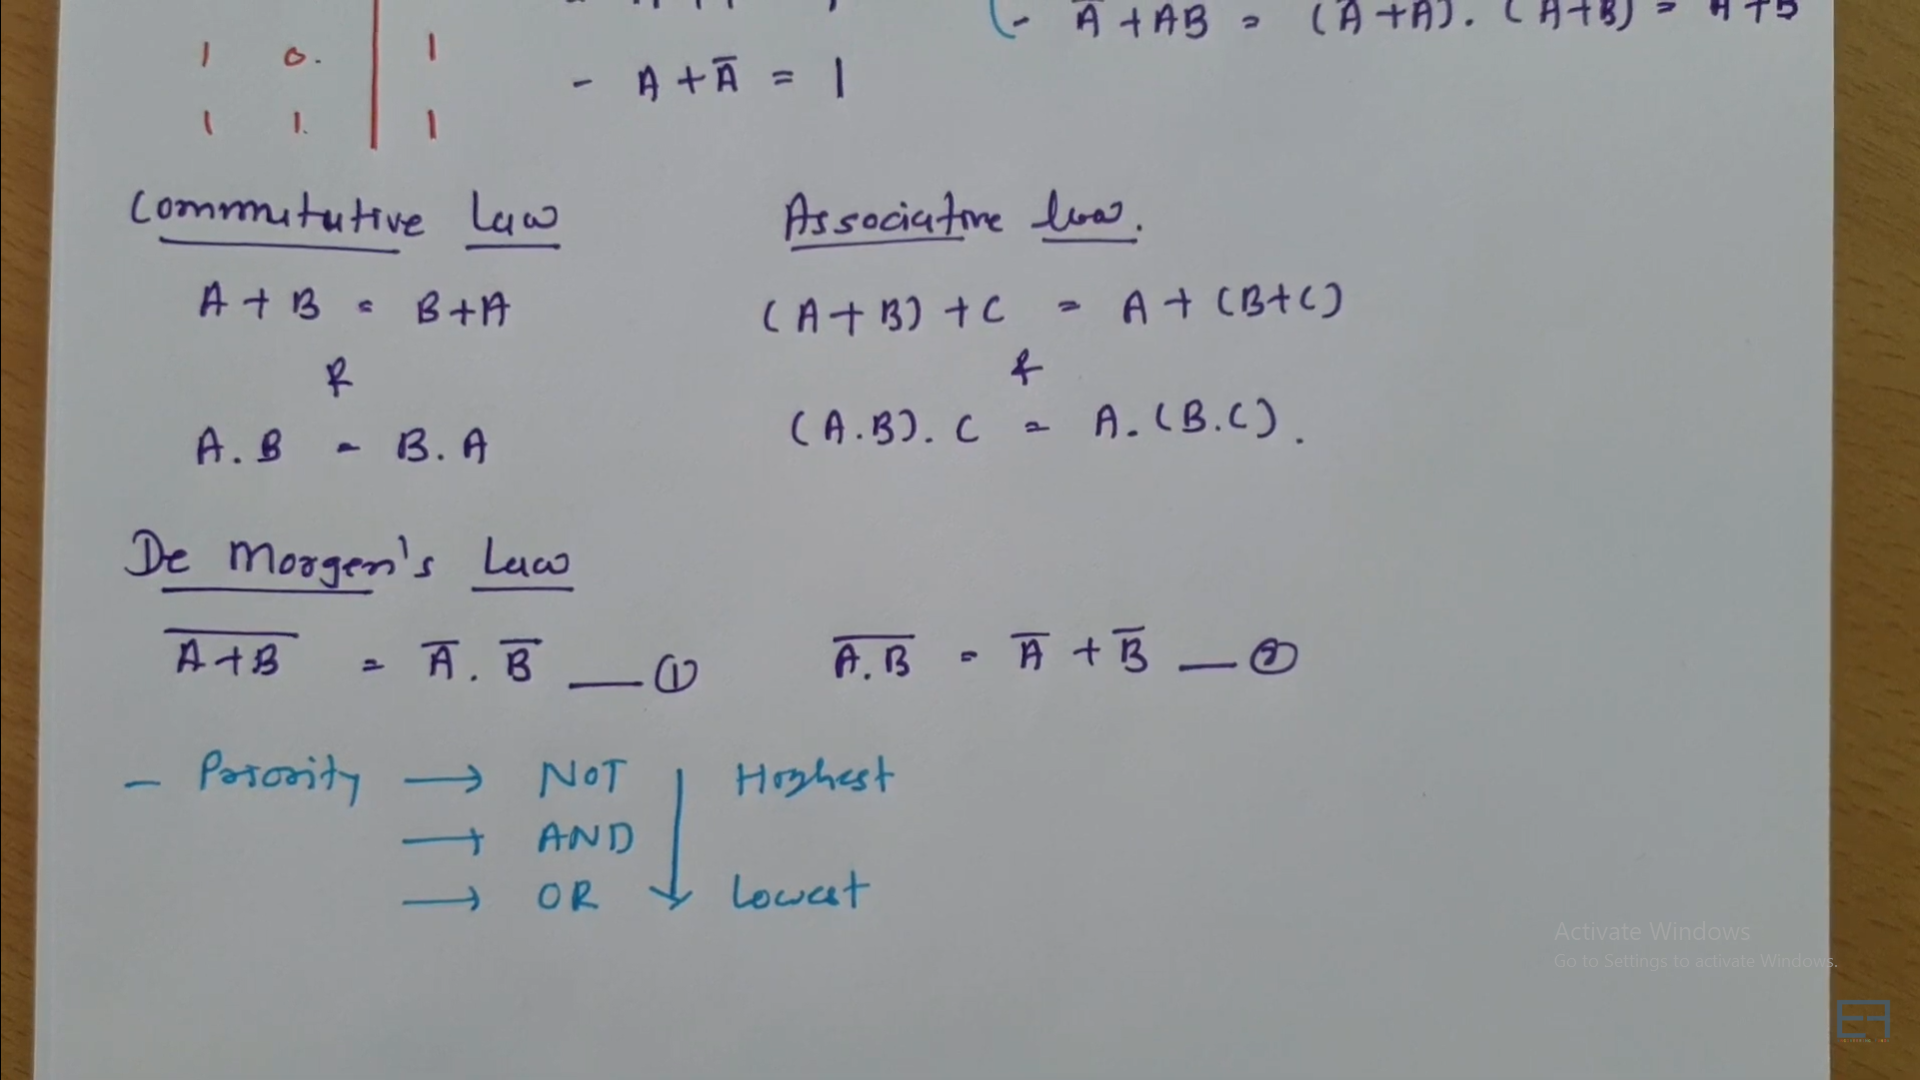 1 0. 1
- Ā + AB = (Ā+A).(Ā+B) = Ā+B
- A + Ā = 1
1 1. 1
Commutative Law
Associative law.
A + B = B+A
(A+B)+C = A+(B+C)
&
&
A.B = B.A
(A.B).C = A.(B.C).
De Morgen's Law
A̅+̅B̅ = A̅.B̅ — ①
A̅.̅B̅ = A̅+B̅ — ②
- Priority → NOT Highest
→ AND
→ OR ↓ Lowest
Activate Windows
Go to Settings to activate Windows.
EF